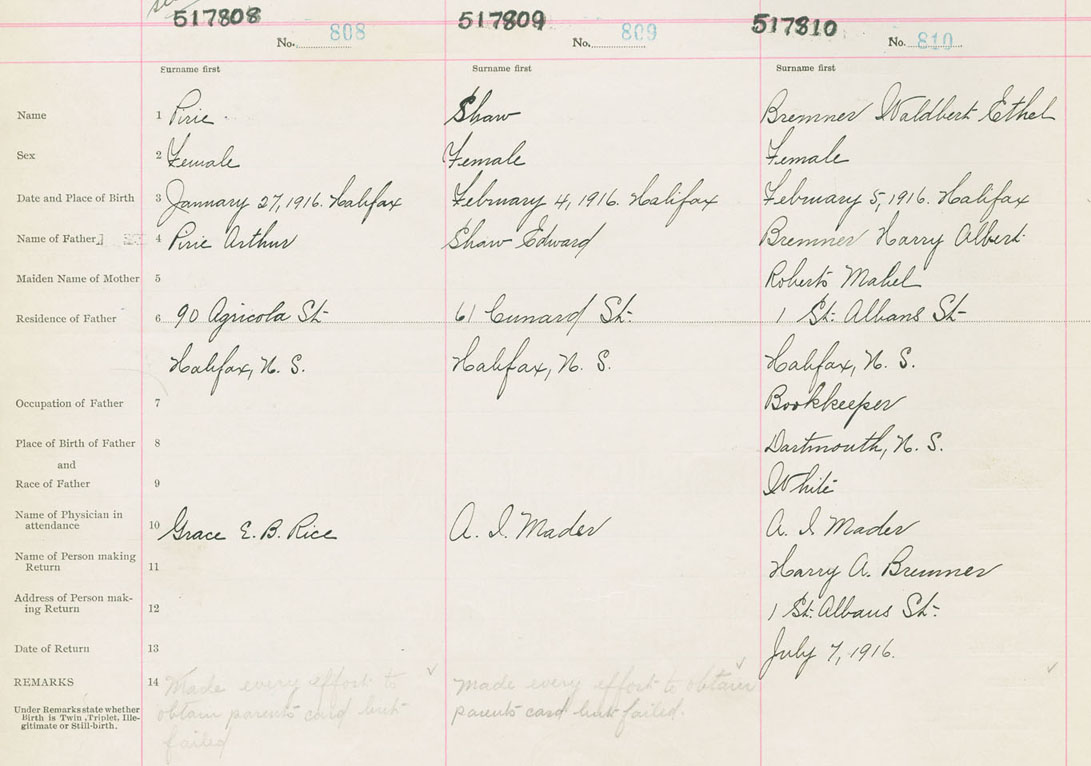 517808 517809 517810
No. 808 No. 809 No. 810
Surname first Surname first Surname first
Name 1 Pirie Shaw Bremner Waldbert Ethel
Sex 2 Female Female Female
Date and Place of Birth 3 January 27, 1916. Halifax February 4, 1916. Halifax February 5, 1916. Halifax
Name of Father 4 Pirie Arthur Shaw Edward Bremner Harry Albert
Maiden Name of Mother 5 Roberts Mabel
Residence of Father 6 90 Agricola St. 61 Cunard St. 1 St. Albans St.
Halifax, N. S. Halifax, N. S. Halifax, N. S.
Occupation of Father 7 Bookkeeper
Place of Birth of Father 8 Dartmouth, N. S.
and
Race of Father 9 White
Name of Physician in
attendance 10 Grace E. B. Rice A. I. Mader A. I. Mader
Name of Person making
Return 11 Harry A. Bremner
Address of Person mak-
ing Return 12 1 St. Albans St.
Date of Return 13 July 7, 1916.
REMARKS 14 Made every effort to Made every effort to obtain
obtain parents card but parents card but failed.
failed
Under Remarks state whether
Birth is Twin, Triplet, Ille-
gitimate or Still-birth.